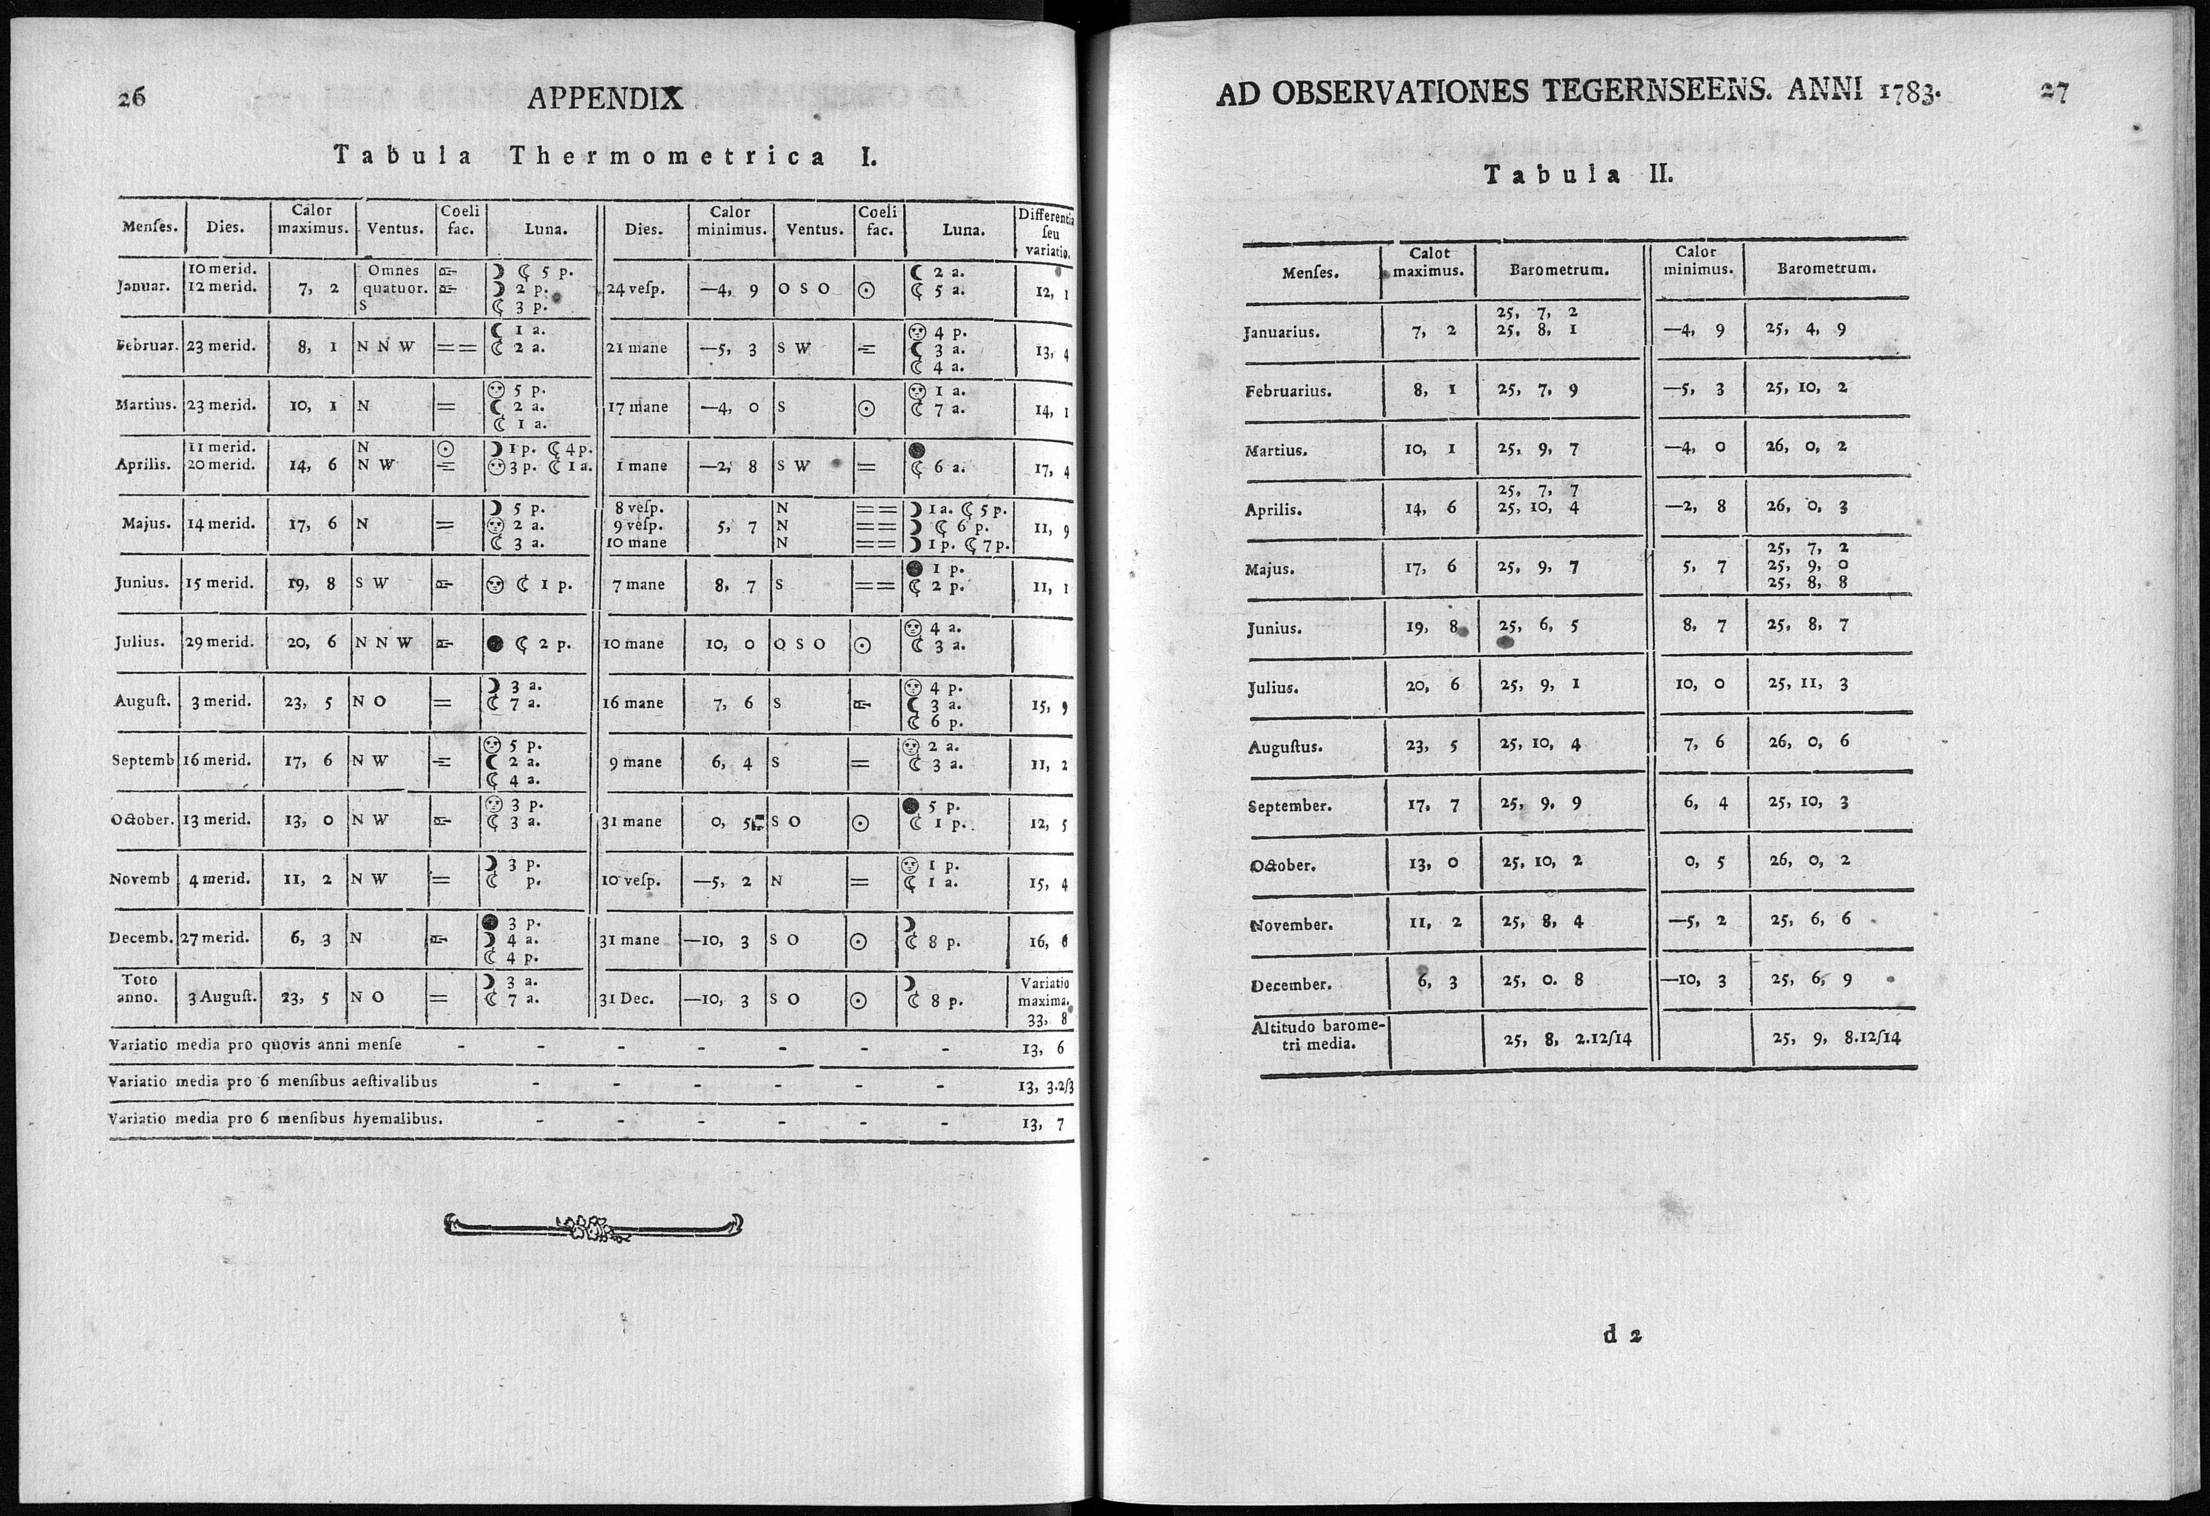 26
APPENDIX
Tabula Thermometrica I.
Menſes. Dies. Calor maximus. Ventus. Coeli fac. Luna. Dies. Calor minimus. Ventus. Coeli fac. Luna. Differentia ſeu variatio.
10 merid. Omnes ☽ ☾ 5 p. ☾ 2 a.
Januar. 12 merid. 7, 2 quatuor. ☽ 2 p. 24 veſp. —4, 9 O S O ☉ ☾ 5 a. 12, 1
S ☾ 3 p.
☾ 1 a. 4 p.
Februar. 23 merid. 8, 1 N N W == ☾ 2 a. 21 mane —5, 3 S W ☾ 3 a. 13, 4
☾ 4 a.
5 p. 1 a.
Martius. 23 merid. 10, 1 N = ☾ 2 a. 17 mane —4, 0 S ☉ ☾ 7 a. 14, 1
☾ 1 a.
11 merid. N ☉ ☽ 1 p. ☾ 4 p. ●
Aprilis. 20 merid. 14, 6 N W 3 p. ☾ 1 a. 1 mane —2, 8 S W = ☾ 6 a. 17, 4
☽ 5 p. 8 veſp. N == ☽ 1 a. ☾ 5 p.
Majus. 14 merid. 17, 6 N = 2 a. 9 veſp. 5, 7 N == ☽ ☾ 6 p. 11, 9
☾ 3 a. 10 mane N == ☽ 1 p. ☾ 7 p.
● 1 p.
Junius. 15 merid. 19, 8 S W ☾ 1 p. 7 mane 8, 7 S == ☾ 2 p. 11, 1
4 a.
Julius. 29 merid. 20, 6 N N W ● ☾ 2 p. 10 mane 10, 0 O S O ☉ ☾ 3 a.
☽ 3 a. 4 p.
Auguſt. 3 merid. 23, 5 N O = ☾ 7 a. 16 mane 7, 6 S ☾ 3 a. 15, 9
☾ 6 p.
5 p. 2 a.
Septemb 16 merid. 17, 6 N W ☾ 2 a. 9 mane 6, 4 S = ☾ 3 a. 11, 2
☾ 4 a.
3 p. ● 5 p.
October. 13 merid. 13, 0 N W ☾ 3 a. 31 mane 0, 5 S O ☉ ☾ 1 p. 12, 5
☽ 3 p. 1 p.
Novemb 4 merid. 11, 2 N W = ☾ p. 10 veſp. —5, 2 N = ☾ 1 a. 15, 4
● 3 p. ☽
Decemb. 27 merid. 6, 3 N ☽ 4 a. 31 mane —10, 3 S O ☉ ☾ 8 p. 16, 6
☾ 4 p.
Toto ☽ 3 a. ☽ Variatio
anno. 3 Auguſt. 23, 5 N O = ☾ 7 a. 31 Dec. —10, 3 S O ☉ ☾ 8 p. maxima.
33, 8
Variatio media pro quovis anni menſe - - - - - - - 13, 6
Variatio media pro 6 menſibus aeſtivalibus - - - - - - 13, 3.2/3
Variatio media pro 6 menſibus hyemalibus. - - - - - - 13, 7
AD OBSERVATIONES TEGERNSEENS. ANNI 1783.
27
Tabula II.
Menſes. Calot maximus. Barometrum. Calor minimus. Barometrum.
25, 7, 2
Januarius. 7, 2 25, 8, 1 —4, 9 25, 4, 9
Februarius. 8, 1 25, 7, 9 —5, 3 25, 10, 2
Martius. 10, 1 25, 9, 7 —4, 0 26, 0, 2
25, 7, 7
Aprilis. 14, 6 25, 10, 4 —2, 8 26, 0, 3
25, 7, 2
Majus. 17, 6 25, 9, 7 5, 7 25, 9, 0
25, 8, 8
Junius. 19, 8 25, 6, 5 8, 7 25, 8, 7
Julius. 20, 6 25, 9, 1 10, 0 25, 11, 3
Auguſtus. 23, 5 25, 10, 4 7, 6 26, 0, 6
September. 17, 7 25, 9, 9 6, 4 25, 10, 3
October. 13, 0 25, 10, 2 0, 5 26, 0, 2
November. 11, 2 25, 8, 4 —5, 2 25, 6, 6
December. 6, 3 25, 0. 8 —10, 3 25, 6, 9
Altitudo barome-
tri media. 25, 8, 2.12/14 25, 9, 8.12/14
d 2